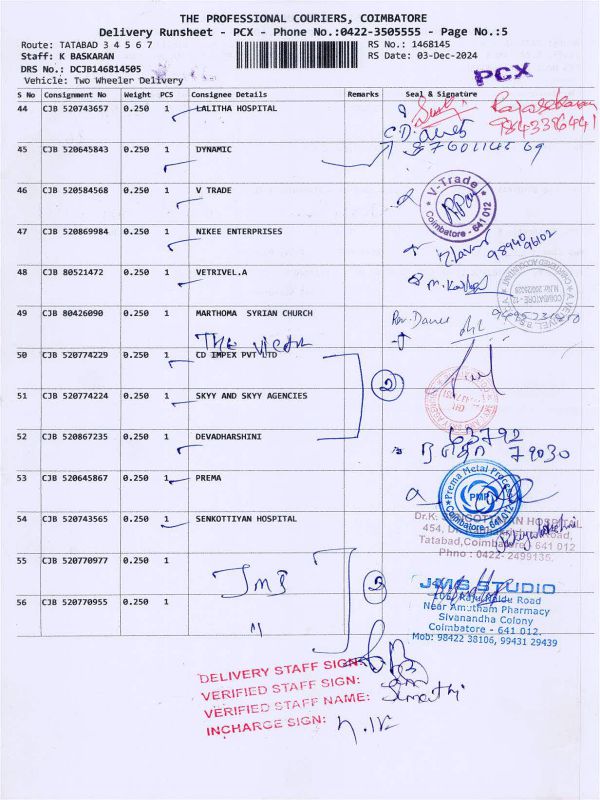 THE PROFESSIONAL COURIERS, COIMBATORE
Delivery Runsheet - PCX - Phone No.:0422-3505555 - Page No.:5
Route: TATABAD 3 4 5 6 7 RS No.: 1468145
Staff: K BASKARAN RS Date: 03-Dec-2024
DRS No.: DCJB146814505
Vehicle: Two Wheeler Delivery
PCX
S No Consignment No Weight PCS Consignee Details Remarks Seal & Signature
44 CJB 520743657 0.250 1 LALITHA HOSPITAL
9843386441
45 CJB 520645843 0.250 1 DYNAMIC
46 CJB 520584568 0.250 1 V TRADE
V-Trade
Coimbatore - 641 012
47 CJB 520869984 0.250 1 NIKEE ENTERPRISES
98940 96102
48 CJB 80521472 0.250 1 VETRIVEL.A
49 CJB 80426090 0.250 1 MARTHOMA SYRIAN CHURCH
The Victor
50 CJB 520774229 0.250 1 CD IMPEX PVT LTD
2
51 CJB 520774224 0.250 1 SKYY AND SKYY AGENCIES
52 CJB 520867235 0.250 1 DEVADHARSHINI
63792
79030
53 CJB 520645867 0.250 1 PREMA
Prema Metal Process
PMP
Coimbatore - 641 012
54 CJB 520743565 0.250 1 SENKOTTIYAN HOSPITAL
Tatabad, Coimbatore - 641 012
Phno : 0422- 2499135,
55 CJB 520770977 0.250 1
JMS 2
JMS STUDIO
106, Raju Naidu Road
Near Amutham Pharmacy
Sivanandha Colony
Coimbatore - 641 012.
Mob: 98422 38106, 99431 29439
56 CJB 520770955 0.250 1
"
DELIVERY STAFF SIGN:
VERIFIED STAFF SIGN:
VERIFIED STAFF NAME: Sumathi
INCHARGE SIGN: